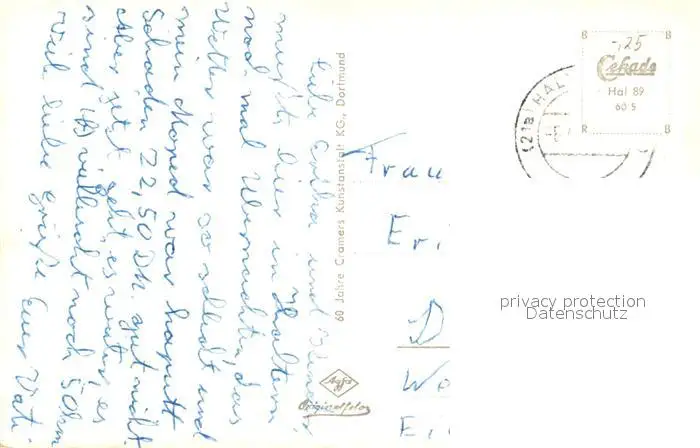 Liebe Erika und
mußte hier in Haltern
noch mal Übernachten, das
Wetter war so schlecht und
mein Moped war kaputt
Schaden 22,50 DM.
Aber jetzt geht es weiter, es
sind vielleicht noch 50 km
Viele liebe Grüße Euer Vati.
60 Jahre Cramers Kunstanstalt KG., Dortmund
Agfa
Originalfoto
Frau
Er.
D
Wa
E.
(21a) HAL
B B
-,25
Cekade
Hal 89
60 S
R R
privacy protection
Datenschutz